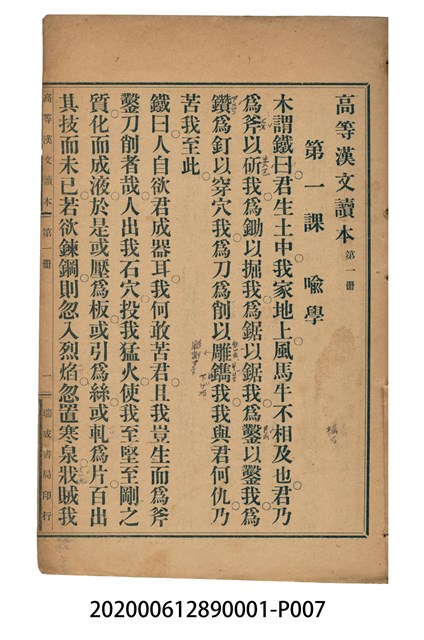 高等漢文讀本 第一冊
第一課 喩學
木謂鐵曰君生土中我家地上風馬牛不相及也君乃
爲斧以斫我爲鋤以掘我爲鋸以鋸我爲鑿以鑿我爲
鑽爲釘以穿穴我爲刀爲削以雕鐫我我與君何仇乃
苦我至此
鐵曰人自欲君成器耳我何敢苦君且我豈生而爲斧
鑿刀削者哉人出我石穴投我猛火使我至堅至剛之
質化而成液於是或壓爲板或引爲絲或軋爲片百出
其技而未已若欲鍊鋼則忽入烈焰忽置寒泉戕賊我
高等漢文讀本 第一冊 一 瑞成書局印行
202000612890001-P007